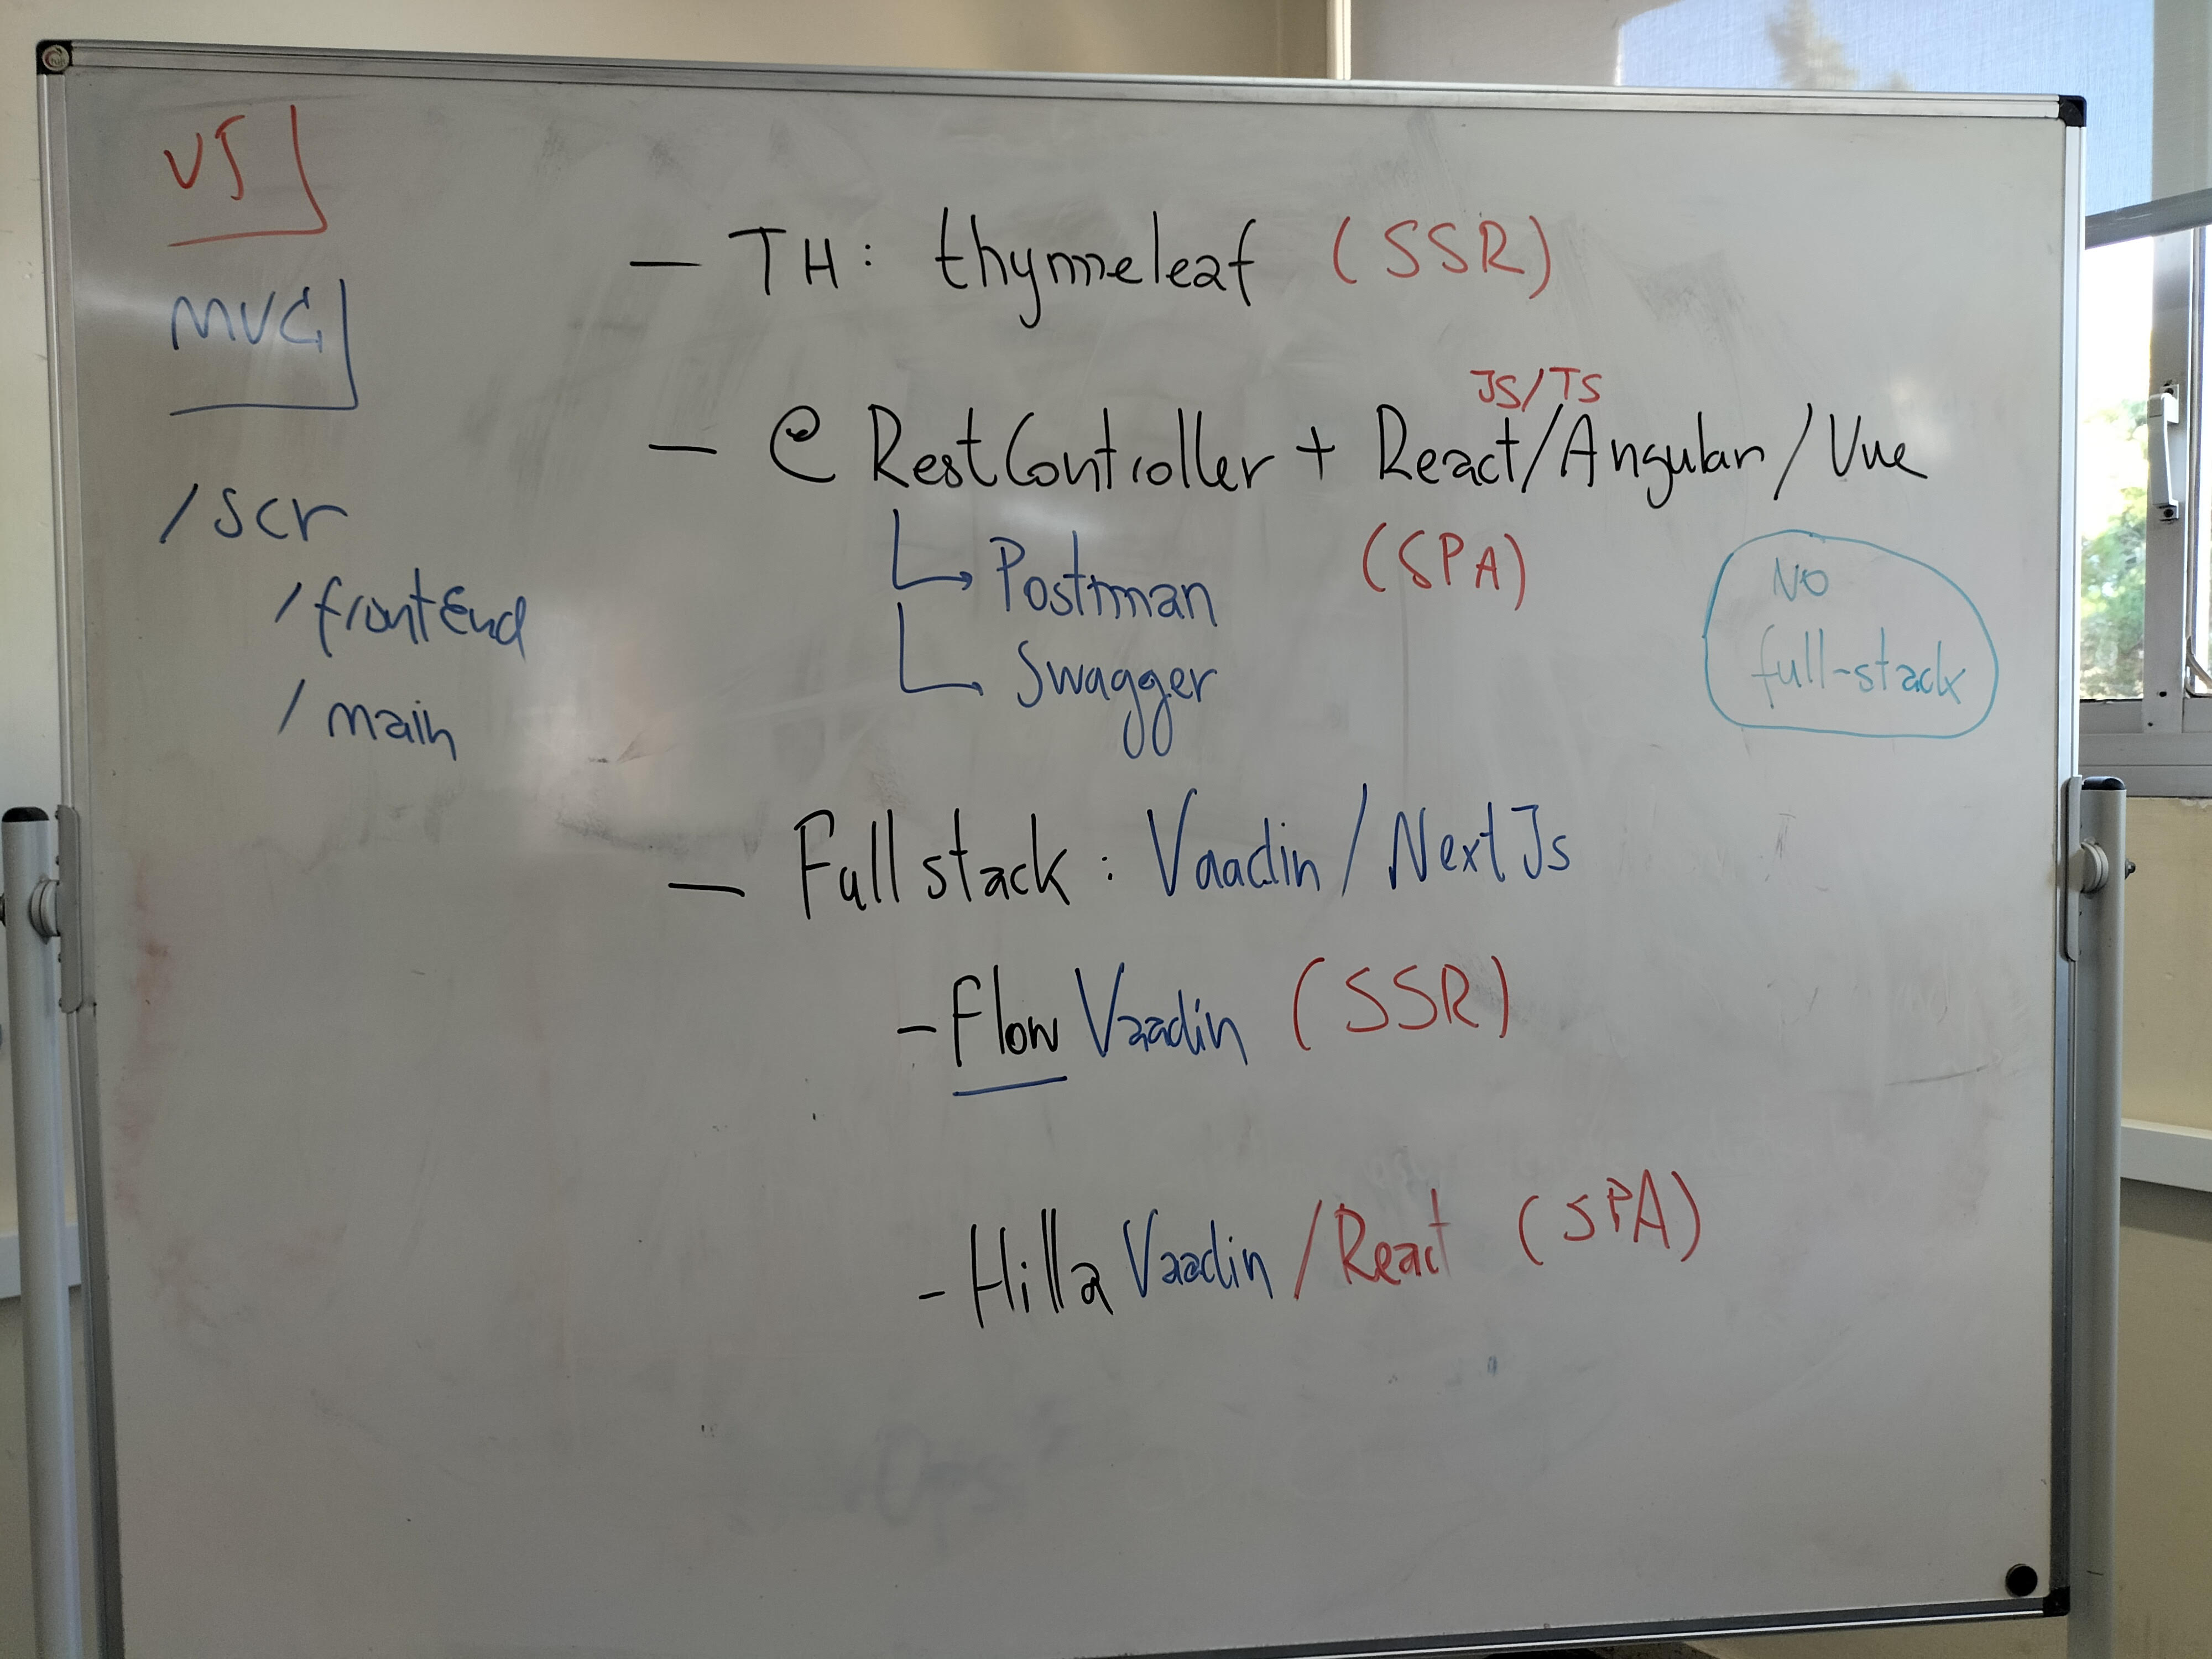 MVC
/scr
/frontEnd
/main
— TH: thymeleaf (SSR)
JS/TS
— @RestController + React/Angular/Vue
Postman (SPA)
Swagger
NO
full-stack
— Full stack: Vaadin/NextJs
- Flow Vaadin (SSR)
- Hilla Vaadin/React (SPA)